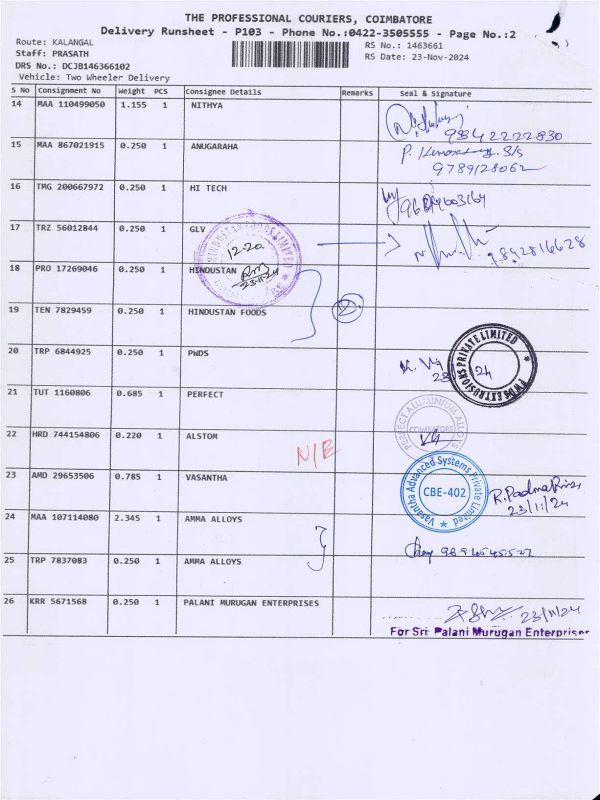 THE PROFESSIONAL COURIERS, COIMBATORE
Delivery Runsheet - P103 - Phone No.:0422-3505555 - Page No.:2
Route: KALANGAL
Staff: PRASATH
DRS No.: DCJB146366102
Vehicle: Two Wheeler Delivery
RS No.: 1463661
RS Date: 23-Nov-2024
S No Consignment No Weight PCS Consignee Details Remarks Seal & Signature
14 MAA 110499050 1.155 1 NITHYA
9342222830
15 MAA 867021915 0.250 1 ANUGARAHA
9789128062
16 TMG 200667972 0.250 1 HI TECH
17 TRZ 56012844 0.250 1 GLV
7892816628
HINDUSTAN FOODS LIMITED
12.20
23-11-24
18 PRO 17269046 0.250 1 HINDUSTAN
2
19 TEN 7829459 0.250 1 HINDUSTAN FOODS
20 TRP 6844925 0.250 1 PWDS
PWDS EXTRUSIONS PRIVATE LIMITED
21 TUT 1160806 0.685 1 PERFECT
PERFECT ALUMINIUM ALLOYS
COIMBATORE
22 HRD 744154806 0.220 1 ALSTOM
N/E
23 AMD 29653506 0.785 1 VASANTHA
Vasantha Advanced Systems Private Limited
CBE-402
23/11/24
24 MAA 107114080 2.345 1 AMMA ALLOYS
25 TRP 7837083 0.250 1 AMMA ALLOYS
26 KRR 5671568 0.250 1 PALANI MURUGAN ENTERPRISES
23/11/24
For Sri Palani Murugan Enterprises